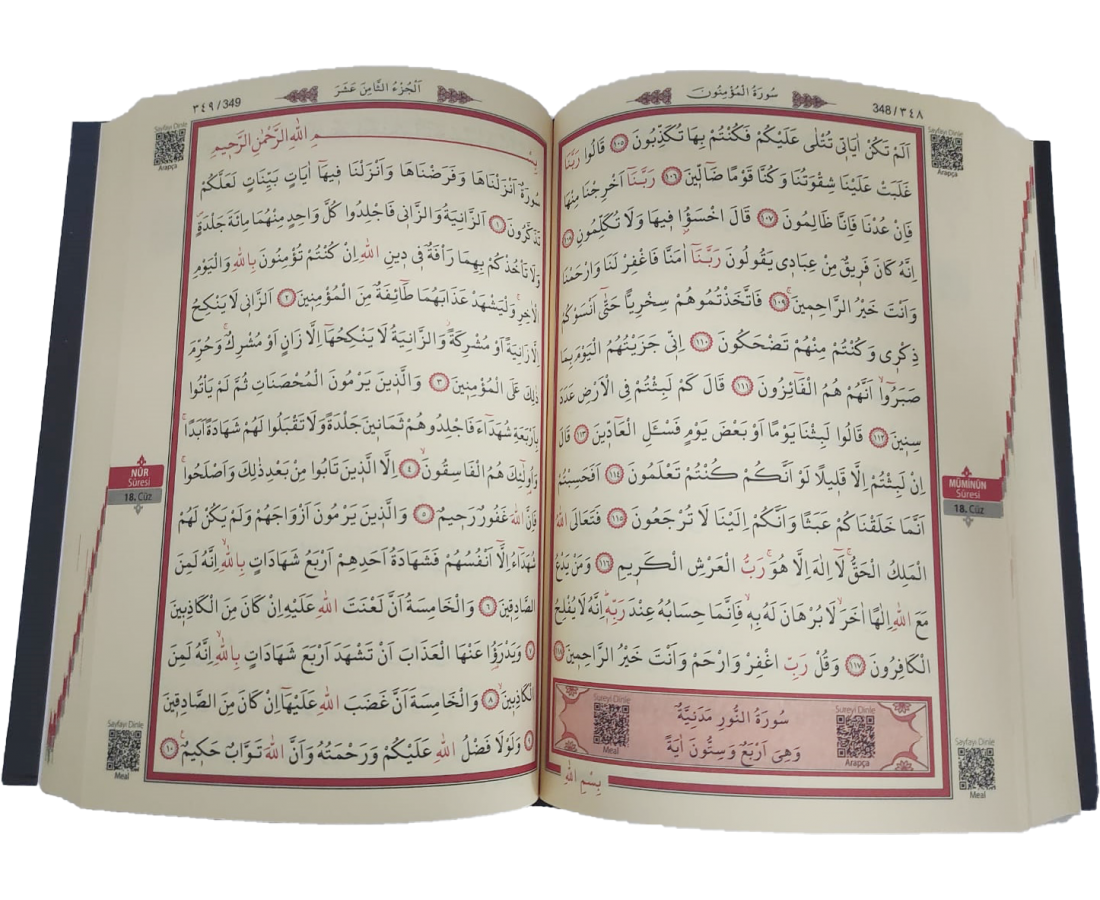 348 / ٣٤٨
سُورَةُ الْمُؤْمِنُونَ
Sayfayı Dinle
Arapça
اَلَمْ تَكُنْ اٰيَاتٖى تُتْلٰى عَلَيْكُمْ فَكُنْتُمْ بِهَا تُكَذِّبُونَ ﴿١٠٥﴾ قَالُوا رَبَّنَا
غَلَبَتْ عَلَيْنَا شِقْوَتُنَا وَكُنَّا قَوْمًا ضَٓالّٖينَ ﴿١٠٦﴾ رَبَّنَٓا اَخْرِجْنَا مِنْهَا
فَاِنْ عُدْنَا فَاِنَّا ظَالِمُونَ ﴿١٠٧﴾ قَالَ اخْسَؤُ۫ا فٖيهَا وَلَا تُكَلِّمُونِ ﴿١٠٨﴾
اِنَّهُ كَانَ فَرٖيقٌ مِنْ عِبَادٖى يَقُولُونَ رَبَّنَٓا اٰمَنَّا فَاغْفِرْ لَنَا وَارْحَمْنَا
وَاَنْتَ خَيْرُ الرَّاحِمٖينَ ﴿١٠٩﴾ فَاتَّخَذْتُمُوهُمْ سِخْرِيًّا حَتّٰٓى اَنْسَوْكُمْ
ذِكْرٖى وَكُنْتُمْ مِنْهُمْ تَضْحَكُونَ ﴿١١٠﴾ اِنّٖى جَزَيْتُهُمُ الْيَوْمَ بِمَا
صَبَرُٓوا اَنَّهُمْ هُمُ الْفَٓائِزُونَ ﴿١١١﴾ قَالَ كَمْ لَبِثْتُمْ فِى الْاَرْضِ عَدَدَ
سِنٖينَ ﴿١١٢﴾ قَالُوا لَبِثْنَا يَوْمًا اَوْ بَعْضَ يَوْمٍ فَسْـَٔلِ الْعَٓادّٖينَ ﴿١١٣﴾ قَالَ
اِنْ لَبِثْتُمْ اِلَّا قَلٖيلًا لَوْ اَنَّكُمْ كُنْتُمْ تَعْلَمُونَ ﴿١١٤﴾ اَفَحَسِبْتُمْ
اَنَّمَا خَلَقْنَاكُمْ عَبَثًا وَاَنَّكُمْ اِلَيْنَا لَا تُرْجَعُونَ ﴿١١٥﴾ فَتَعَالَى اللّٰهُ
الْمَلِكُ الْحَقُّ لَٓا اِلٰهَ اِلَّا هُوَ رَبُّ الْعَرْشِ الْكَرٖيمِ ﴿١١٦﴾ وَمَنْ يَدْعُ
مَعَ اللّٰهِ اِلٰهًا اٰخَرَ لَا بُرْهَانَ لَهُ بِهٖ فَاِنَّمَا حِسَابُهُ عِنْدَ رَبِّهٖ اِنَّهُ لَا يُفْلِحُ
الْكَافِرُونَ ﴿١١٧﴾ وَقُلْ رَبِّ اغْفِرْ وَارْحَمْ وَاَنْتَ خَيْرُ الرَّاحِمٖينَ ﴿١١٨﴾
MÜMİNÛN
Sûresi
18. Cüz
Sûreyi Dinle
Arapça
سُورَةُ النُّورِ مَدَنِيَّةٌ
وَهِىَ اَرْبَعٌ وَسِتُّونَ اٰيَةً
Sûreyi Dinle
Meal
بِسْمِ اللّٰهِ
Sayfayı Dinle
Meal
اَلْجُزْءُ الثَّامِنَ عَشَرَ
٣٤٩ / 349
Sayfayı Dinle
Arapça
بِسْمِ اللّٰهِ الرَّحْمٰنِ الرَّحٖيمِ
سُورَةٌ اَنْزَلْنَاهَا وَفَرَضْنَاهَا وَاَنْزَلْنَا فٖيهَٓا اٰيَاتٍ بَيِّنَاتٍ لَعَلَّكُمْ
تَذَكَّرُونَ ﴿١﴾ اَلزَّانِيَةُ وَالزَّانٖى فَاجْلِدُوا كُلَّ وَاحِدٍ مِنْهُمَا مِائَةَ جَلْدَةٍ
وَلَا تَأْخُذْكُمْ بِهِمَا رَأْفَةٌ فٖى دٖينِ اللّٰهِ اِنْ كُنْتُمْ تُؤْمِنُونَ بِاللّٰهِ وَالْيَوْمِ
الْاٰخِرِ وَلْيَشْهَدْ عَذَابَهُمَا طَٓائِفَةٌ مِنَ الْمُؤْمِنٖينَ ﴿٢﴾ اَلزَّانٖى لَا يَنْكِحُ
اِلَّا زَانِيَةً اَوْ مُشْرِكَةً وَالزَّانِيَةُ لَا يَنْكِحُهَٓا اِلَّا زَانٍ اَوْ مُشْرِكٌ وَحُرِّمَ
ذٰلِكَ عَلَى الْمُؤْمِنٖينَ ﴿٣﴾ وَالَّذٖينَ يَرْمُونَ الْمُحْصَنَاتِ ثُمَّ لَمْ يَأْتُوا
بِاَرْبَعَةِ شُهَدَٓاءَ فَاجْلِدُوهُمْ ثَمَانٖينَ جَلْدَةً وَلَا تَقْبَلُوا لَهُمْ شَهَادَةً اَبَدًا
وَاُولٰٓئِكَ هُمُ الْفَاسِقُونَ ﴿٤﴾ اِلَّا الَّذٖينَ تَابُوا مِنْ بَعْدِ ذٰلِكَ وَاَصْلَحُوا
فَاِنَّ اللّٰهَ غَفُورٌ رَحٖيمٌ ﴿٥﴾ وَالَّذٖينَ يَرْمُونَ اَزْوَاجَهُمْ وَلَمْ يَكُنْ لَهُمْ
شُهَدَٓاءُ اِلَّٓا اَنْفُسُهُمْ فَشَهَادَةُ اَحَدِهِمْ اَرْبَعُ شَهَادَاتٍ بِاللّٰهِ اِنَّهُ لَمِنَ
الصَّادِقٖينَ ﴿٦﴾ وَالْخَامِسَةُ اَنَّ لَعْنَتَ اللّٰهِ عَلَيْهِ اِنْ كَانَ مِنَ الْكَاذِبٖينَ
﴿٧﴾ وَيَدْرَؤُ۬ا عَنْهَا الْعَذَابَ اَنْ تَشْهَدَ اَرْبَعَ شَهَادَاتٍ بِاللّٰهِ اِنَّهُ لَمِنَ
الْكَاذِبٖينَ ﴿٨﴾ وَالْخَامِسَةَ اَنَّ غَضَبَ اللّٰهِ عَلَيْهَٓا اِنْ كَانَ مِنَ الصَّادِقٖينَ
﴿٩﴾ وَلَوْلَا فَضْلُ اللّٰهِ عَلَيْكُمْ وَرَحْمَتُهُ وَاَنَّ اللّٰهَ تَوَّابٌ حَكٖيمٌ ﴿١٠﴾
NÛR
Sûresi
18. Cüz
Sayfayı Dinle
Meal